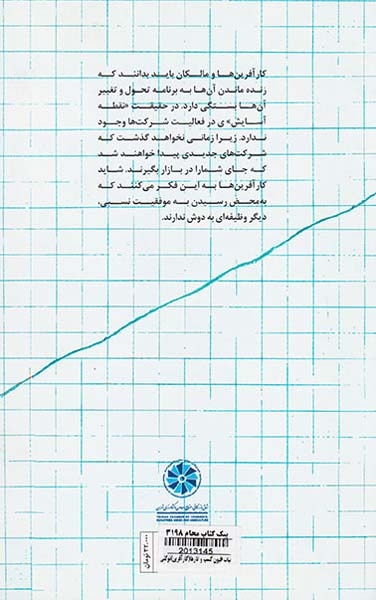 کارآفرین‌ها و مالکان باید بدانند که
زنده ماندن آن‌ها به برنامه تحول و تغییر
آن‌ها بستگی دارد. در حقیقت «نقطه
آسایش» ی در فعالیت شرکت‌ها وجود
ندارد. زیرا زمانی نخواهد گذشت که
شرکت‌های جدیدی پیدا خواهند شد
که جای شمارا در بازار بگیرند. شاید
کارآفرین‌ها به این فکر می‌کنند که
به‌محض رسیدن به موفقیت نسبی،
دیگر وظیفه‌ای به دوش ندارند.
TEHRAN CHAMBER OF COMMERCE,
INDUSTRIES, MINES AND AGRICULTURE
پیک کتاب محام ۳۱۹۸
2013145
۲۲,۰۰۰ تومان